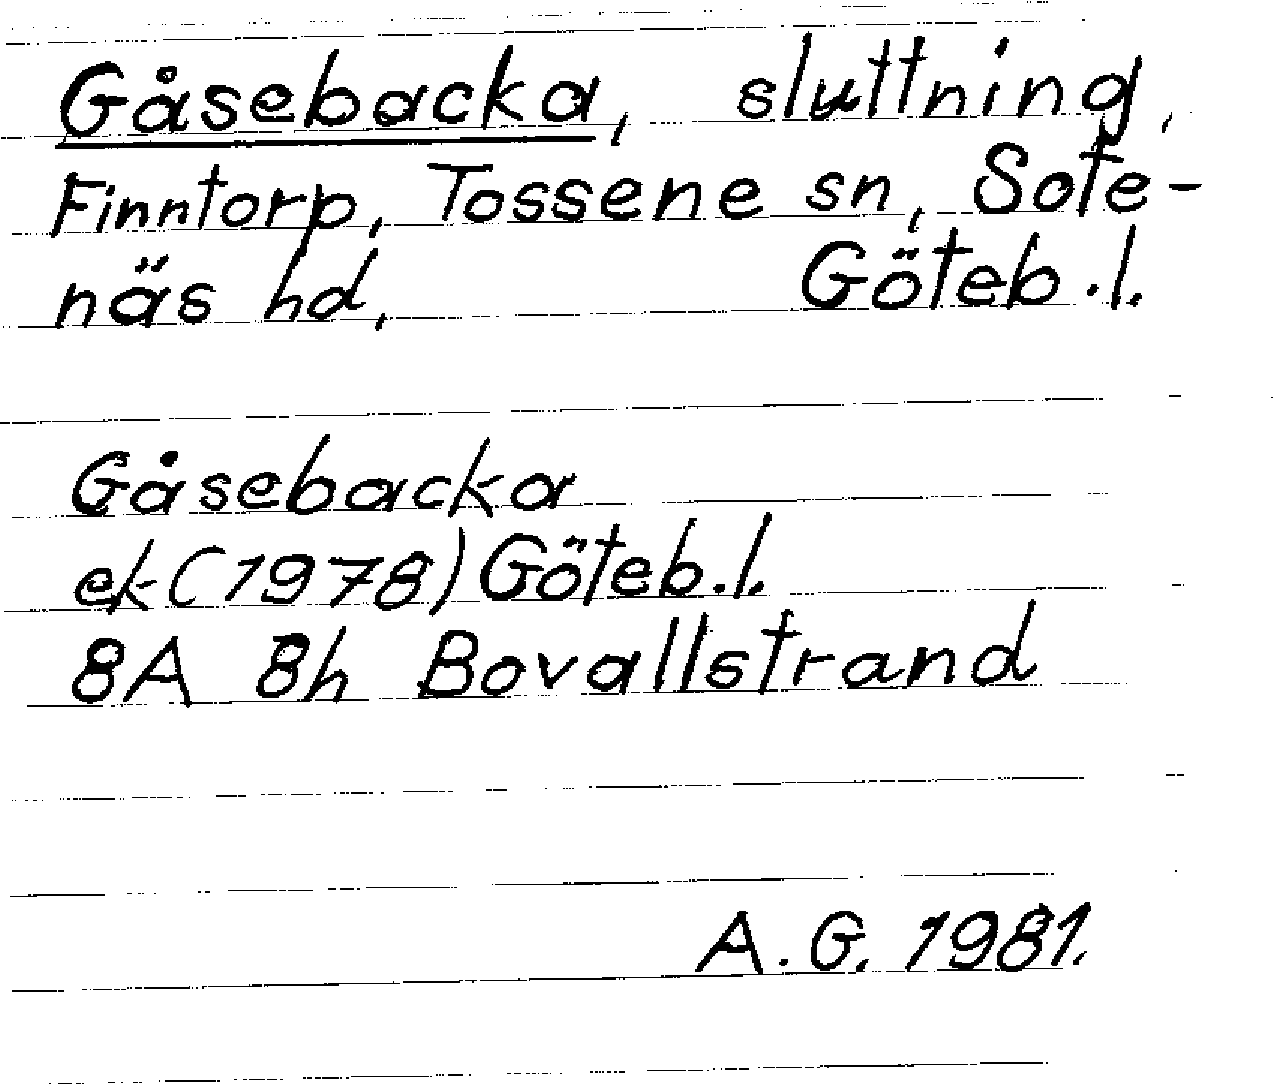 Gåsebacka, sluttning,
Finntorp, Tossene sn, Sote-
näs hd, Göteb.l.
Gåsebacka
ek (1978) Göteb.l.
8A 8h Bovallstrand
A.G. 1981.